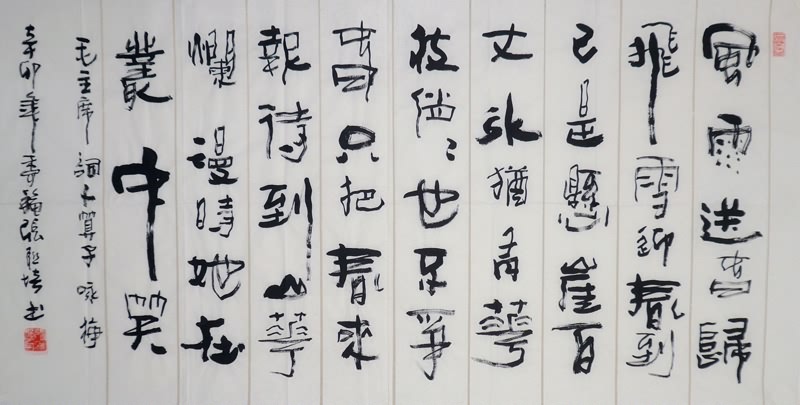 風雨送春歸
飛雪迎春到
已是懸崖百
丈冰猶有華
枝俏〻也不爭
春只把春來
報待到山華
爛漫時她在
叢中笑
毛主席詞卜算子咏梅
辛卯年張培书